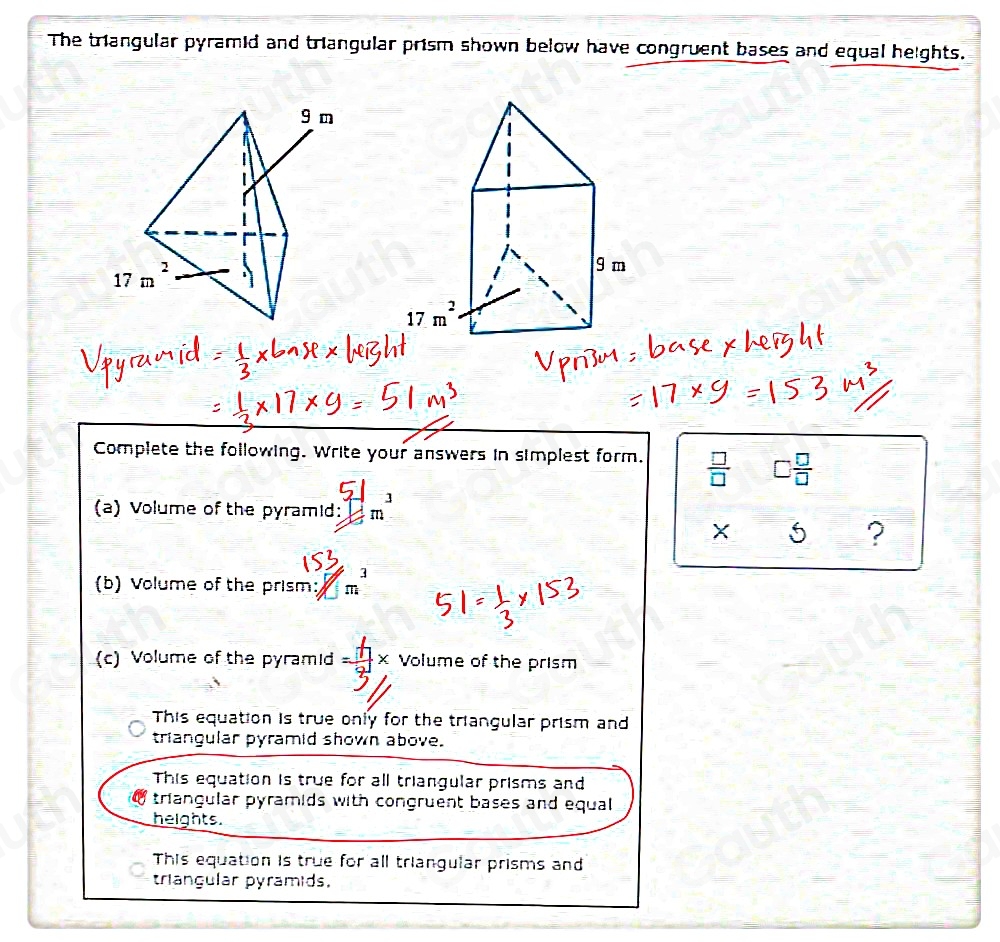 The triangular pyramid and triangular prism shown below have congruent bases and equal heights.
9 m
17 m²
9 m
17 m²
Vpyramid = 1/3 × base × height
= 1/3 × 17 × 9 = 51 m³
Vprism = base × height
= 17 × 9 = 153 m³
Complete the following. Write your answers in simplest form.
(a) Volume of the pyramid: 51 m³
(b) Volume of the prism: 153 m³
51 = 1/3 × 153
(c) Volume of the pyramid = 1/3 × Volume of the prism
This equation is true only for the triangular prism and
triangular pyramid shown above.
This equation is true for all triangular prisms and
triangular pyramids with congruent bases and equal
heights.
This equation is true for all triangular prisms and
triangular pyramids.
× ?
Gauth